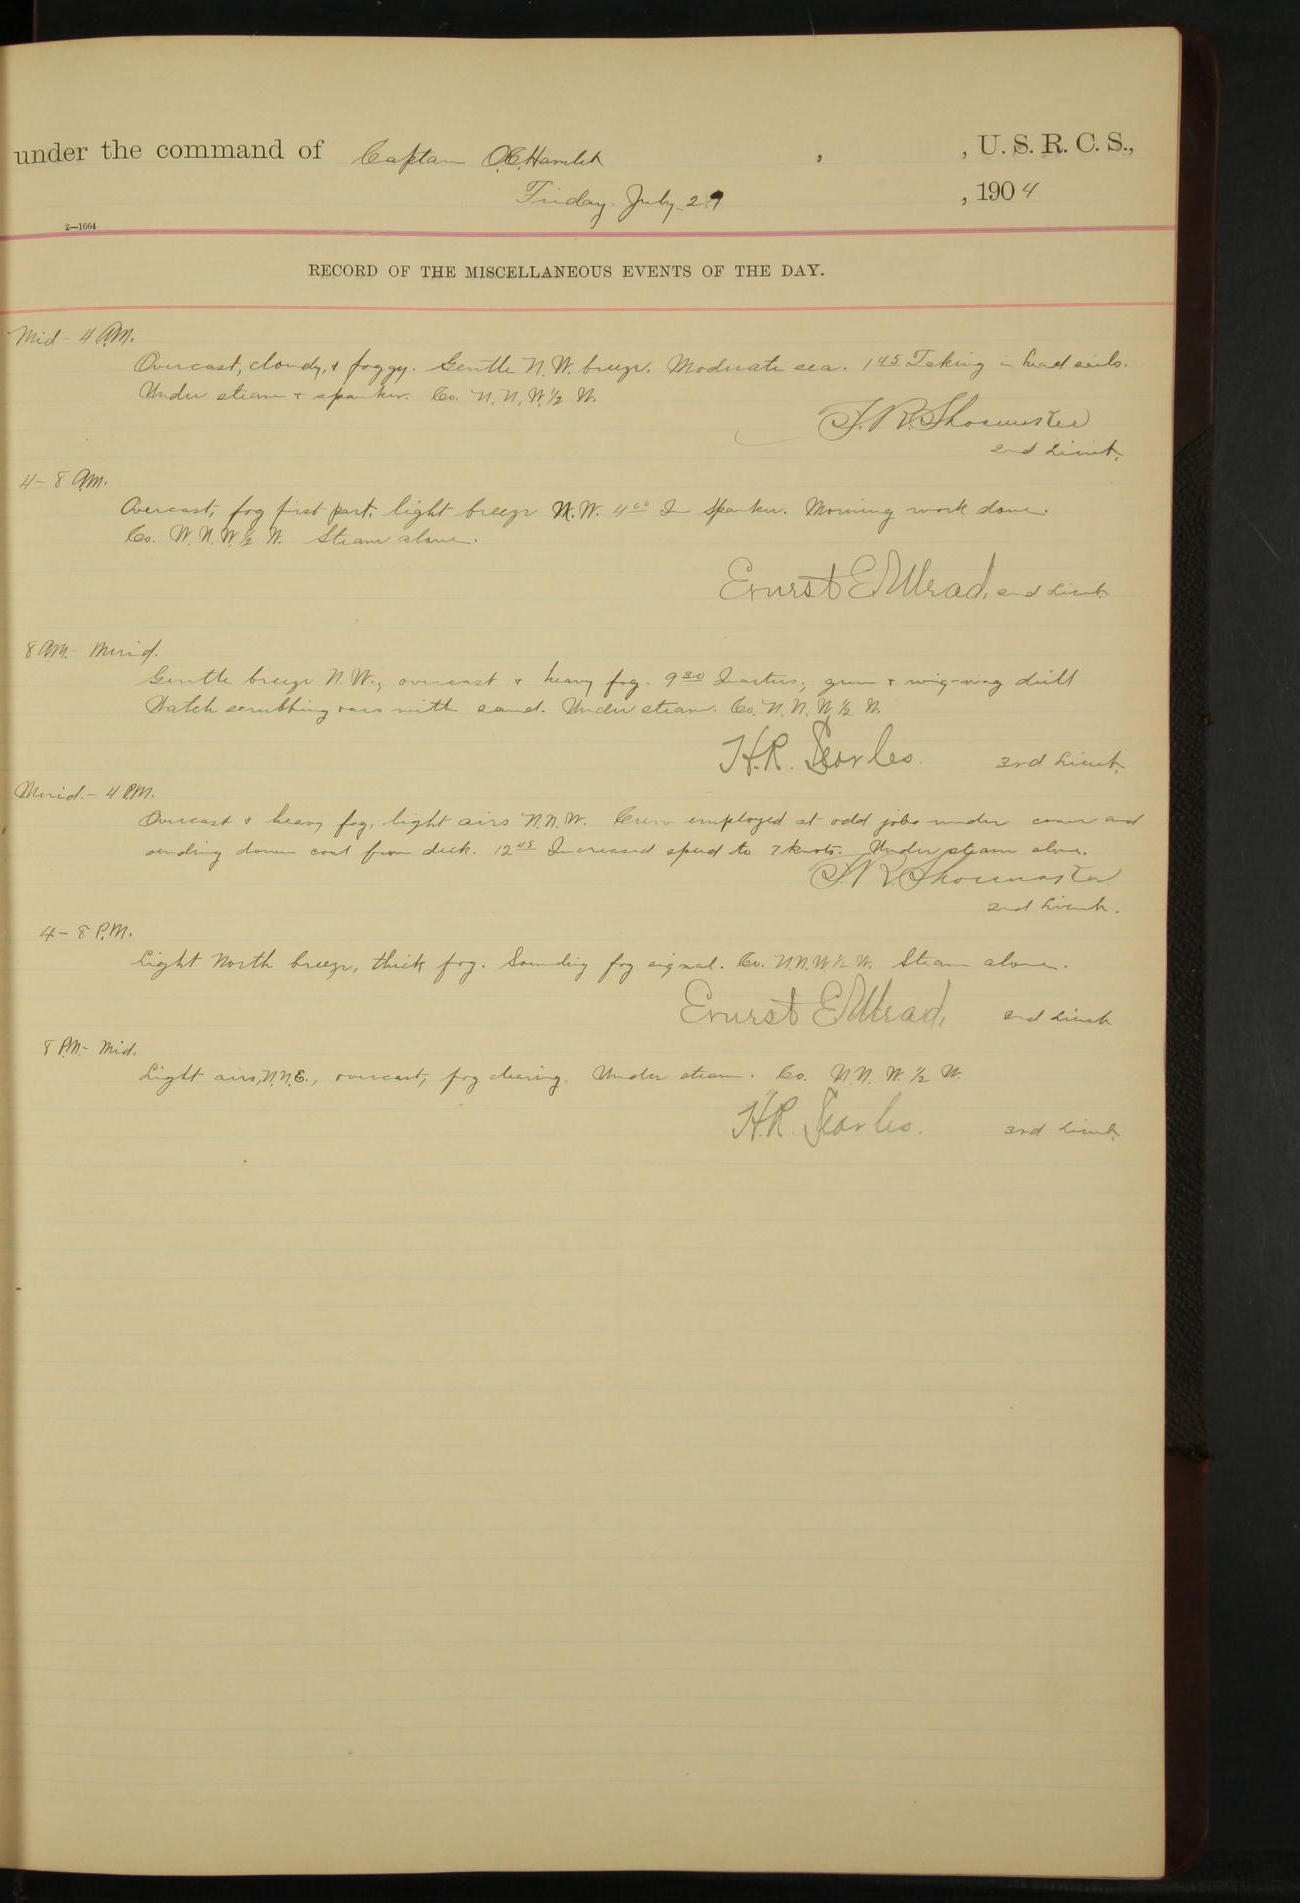 under the command of Captain O.C. Hamlet , , U. S. R. C. S.,
Friday. July 29 , 1904
2—1664
RECORD OF THE MISCELLANEOUS EVENTS OF THE DAY.
Mid - 4 A.M.
Overcast, cloudy, & foggy. Gentle N.W. breeze. Moderate sea. 1 45 Taking in head sails.
Under steam & spanker. Co. N.N.W. 1/2 W.
2nd Lieut.
4 - 8 A.M.
Overcast, fog first part, light breeze N.W. 4 In Spanker. Morning work done.
Co. N.N.W. 1/2 W. Steam alone.
Ernest E. Mead, 2nd Lieut.
8 A.M. - Merid.
Gentle breeze N.W., overcast & heavy fog. 9 30 Quarters; gun & wig-wag drill
Watch scrubbing oars with sand. Under steam. Co. N.N.W. 1/2 W.
H.R. Searles. 3rd Lieut.
Merid. - 4 P.M.
Overcast & heavy fog, light airs N.N.W. Crew employed at odd jobs under cover and
sending down coal from deck. 12 45 Increased speed to 7 knots. Under steam alone.
2nd Lieut.
4 - 8 P.M.
Light North breeze, thick fog. Sounding fog signal. Co. N.N.W 1/2 W. Steam alone.
Ernest E. Mead, 2nd Lieut
8 P.M. - Mid.
Light airs, N.N.E., overcast, fog clearing. Under steam. Co. N.N.W. 1/2 W.
H.R. Searles. 3rd Lieut.